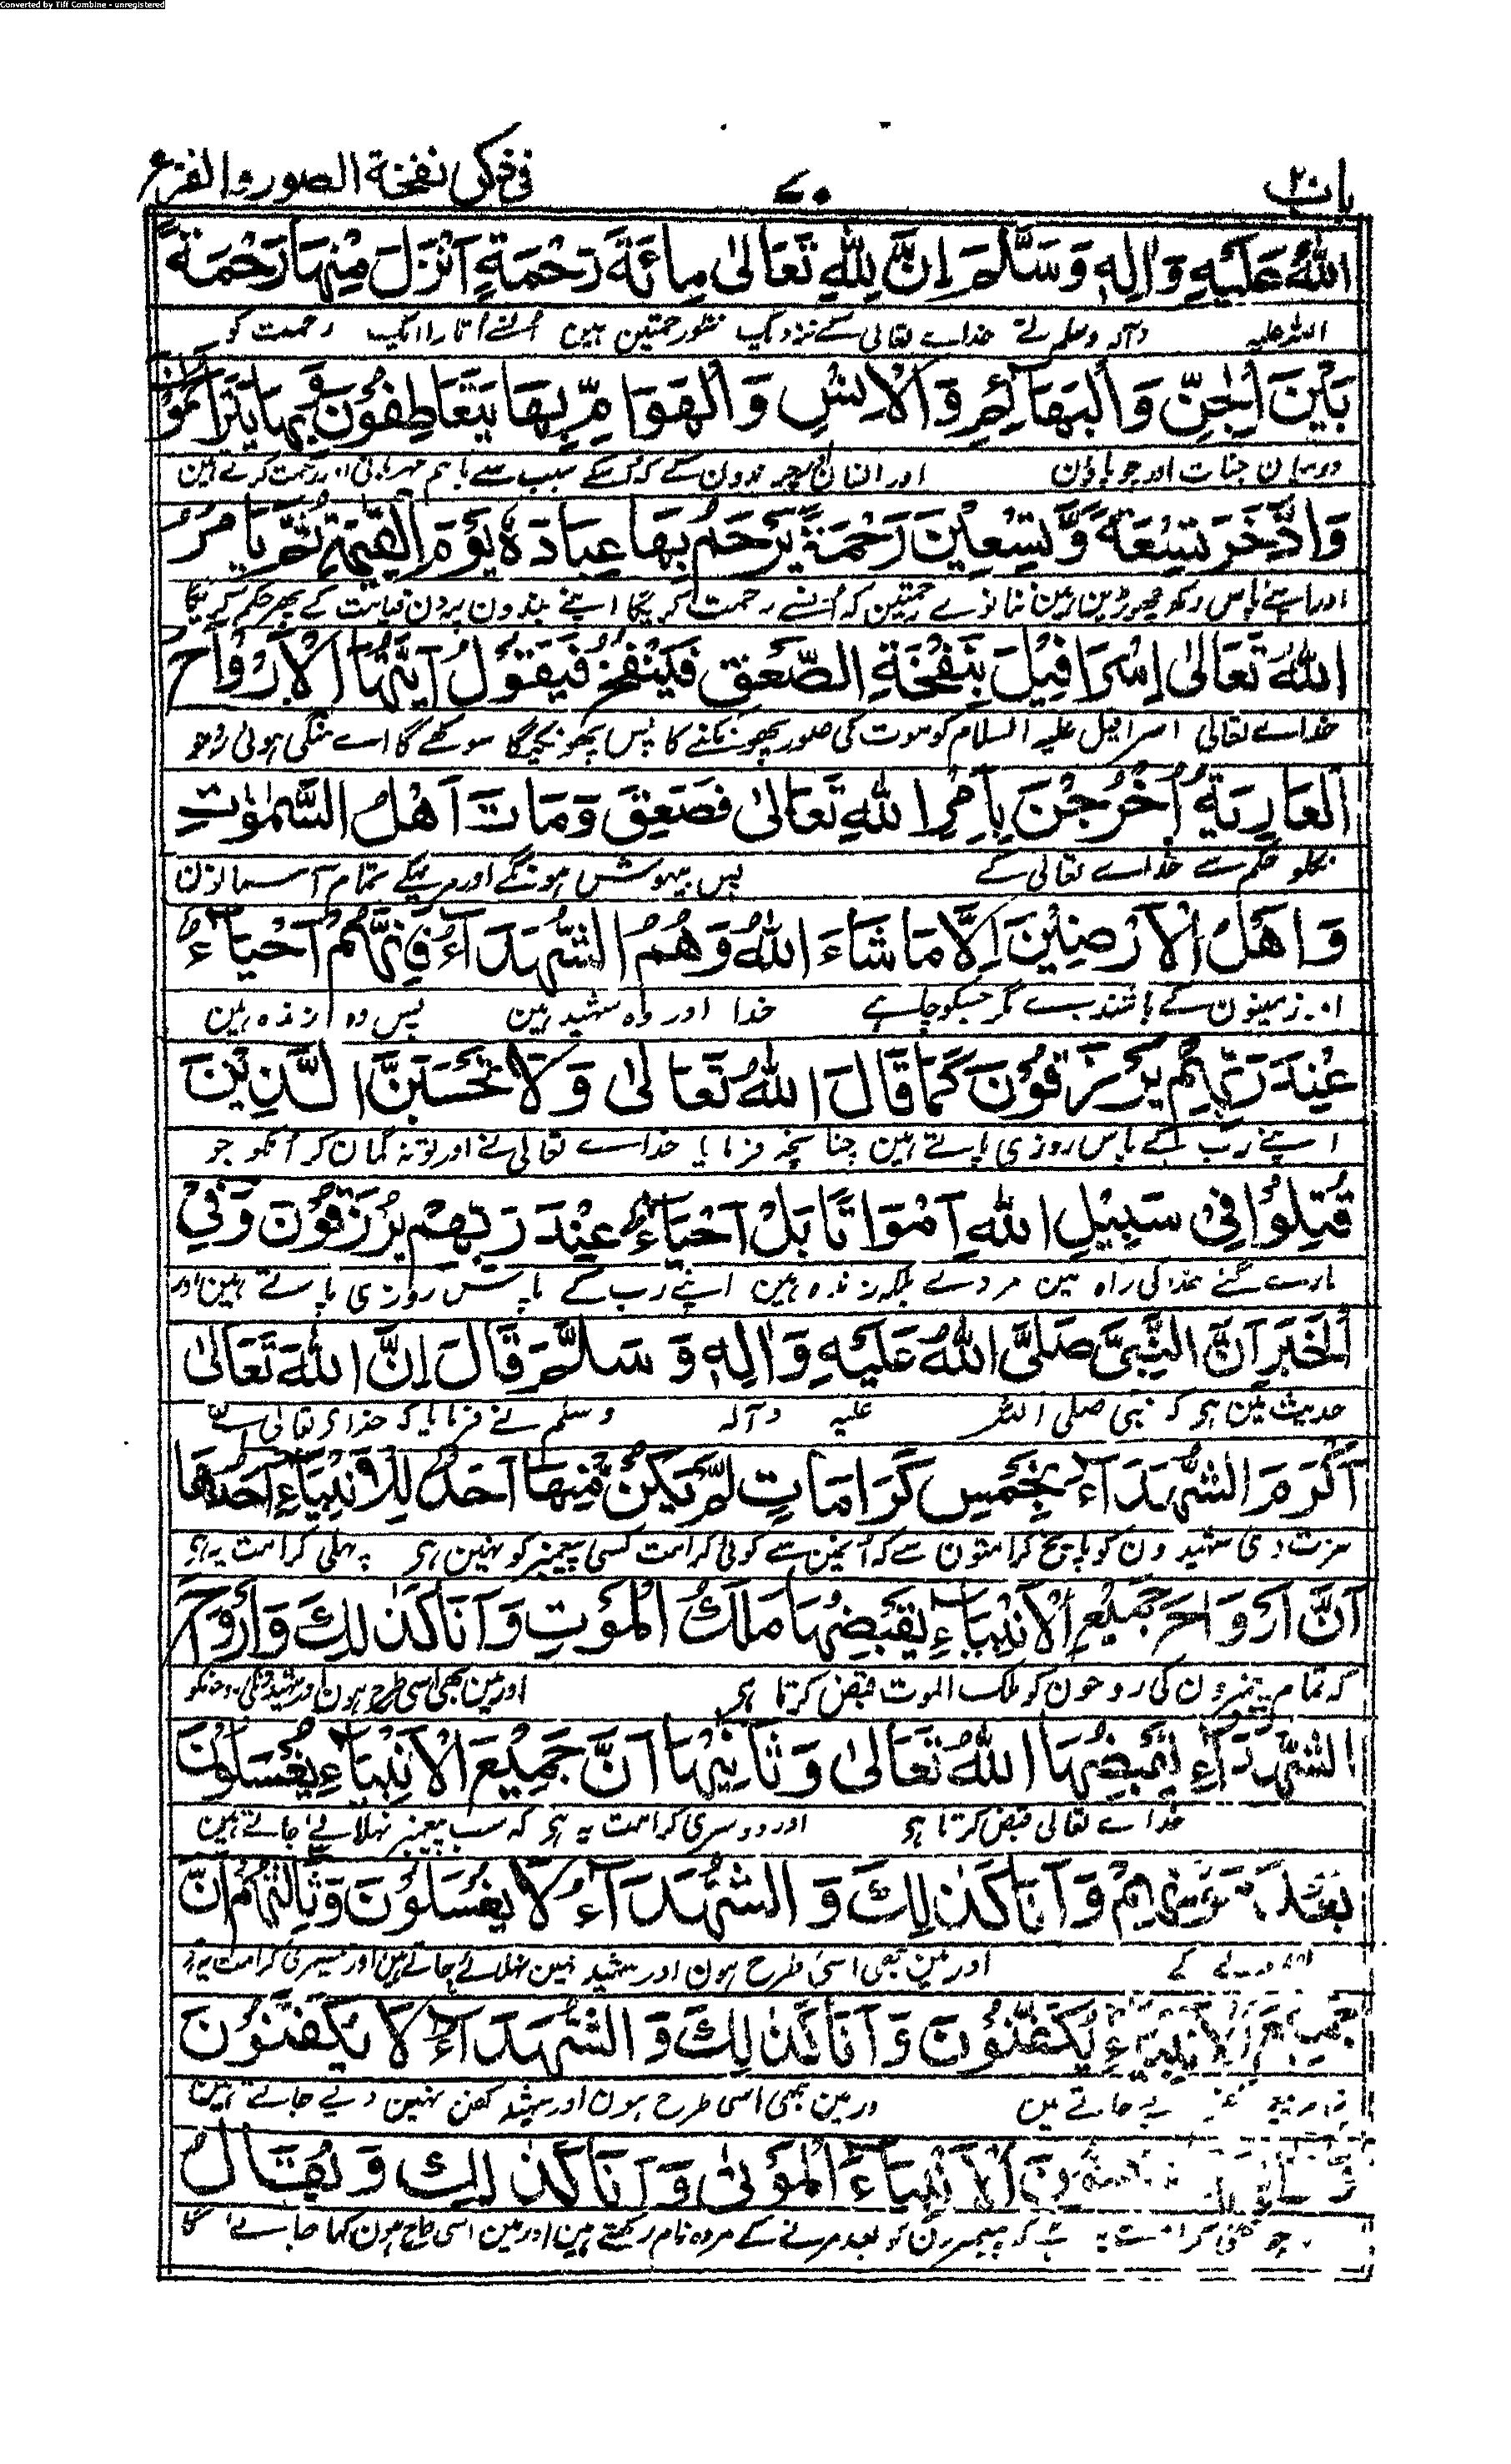 Converted by Tiff Combine - unregistered
باب ۲۰
۷۰
فی ذکر نفخة الصور والفزع
اللّٰهُ عَلَيْهِ وَاٰلِهٖ وَسَلَّمَ اِنَّ لِلّٰهِ تَعَالٰى مِائَةَ رَحْمَةٍ اَنْزَلَ مِنْهَا رَحْمَةً
اللہ علیہ وآلہ وسلم نے خداے تعالی کے نزدیک سَو رحمتین ہین اُسنے اُتارا ایک رحمت کو
بَيْنَ الْجِنِّ وَالْبَهَائِمِ وَالْاِنْسِ وَالْهَوَامِّ بِهَا يَتَعَاطَفُوْنَ وَبِهَا يَتَرَاحَمُوْنَ
درمیان جنات اور چوپاؤن اور انسان اور چرندون کے کہ اُسکے سبب سے باہم مہربانی اور رحمت کرتے ہین
وَادَّخَرَ تِسْعَةً وَّتِسْعِيْنَ رَحْمَةً يَّرْحَمُ بِهَا عِبَادَهٗ يَوْمَ الْقِيٰمَةِ ثُمَّ يَاْمُرُ
اور اپنے پاس رکھ چھوڑین ہین ننانوے رحمتین کہ اُنسے رحمت کریگا اپنے بندون پر دن قیامت کے پھر حکم کریگا
اللّٰهُ تَعَالٰى اِسْرَافِيْلَ بِنَفْخَةِ الصَّعْقِ فَيَنْفُخُ فَيَقُوْلُ اَيَّتُهَا الْاَرْوَاحُ
خداے تعالی اسرافیل علیہ السلام کو موت کی صور پھونکنے کا پس پھونکیگا سو کہے گا اے ننگی ہوئی روحو
الْعَارِيَةُ اُخْرُجْنَ بِاَمْرِ اللّٰهِ تَعَالٰى فَصَعِقَ وَمَاتَ اَهْلُ السَّمٰوٰتِ
نکلو حکم سے خداے تعالی کے پس بیہوش ہونگے اور مرینگے تمام آسمانون
وَاَهْلُ الْاَرْضِيْنَ اِلَّا مَا شَاءَ اللّٰهُ وَهُمُ الشُّهَدَآءُ فَاِنَّهُمْ اَحْيَاءٌ
اور زمینون کے باشندے مگر جسکو چاہے خدا اور وہ شہید ہین پس وہ زندہ ہین
عِنْدَ رَبِّهِمْ يُرْزَقُوْنَ كَمَا قَالَ اللّٰهُ تَعَالٰى وَلَا تَحْسَبَنَّ الَّذِيْنَ
اپنے رب کے پاس روزی پاتے ہین چنانچہ فرمایا خداے تعالی نے اور تو نہ گمان کر اُنکو جو
قُتِلُوْا فِيْ سَبِيْلِ اللّٰهِ اَمْوَاتًا بَلْ اَحْيَاءٌ عِنْدَ رَبِّهِمْ يُرْزَقُوْنَ وَفِي
مارے گئے خدا کی راہ مین مردے بلکہ زندہ ہین اپنے رب کے پاس روزی پاتے ہین اور
الْخَبَرِ اَنَّ النَّبِيَّ صَلَّى اللّٰهُ عَلَيْهِ وَاٰلِهٖ وَسَلَّمَ قَالَ اِنَّ اللّٰهَ تَعَالٰى
حدیث مین ہی کہ نبی صلی اللہ علیہ وآلہ وسلم نے فرمایا کہ خدای تعالی نے
اَكْرَمَ الشُّهَدَآءَ بِخَمْسِ كَرَامَاتٍ لَمْ يَكُنْ مِّنْهَا اَحَدٌ لِلْاَنْبِيَاءِ اَحَدُهَا
عزت دی شہیدون کو پانچ کرامتون سے کہ اُنمین سے کوئی کرامت کسی پیغمبر کو نہین ہی پہلی کرامت یہ ہی
اَنَّ اَرْوَاحَ جَمِيْعِ الْاَنْبِيَاءِ يَقْبِضُهَا مَلَكُ الْمَوْتِ وَاَنَا كَذٰلِكَ وَاَرْوَاحُ
کہ تمام پیغمبرون کی روحون کو ملک الموت قبض کرتا ہی اور مین بھی اسی طرح ہون اور شہیدونکی روحونکو
الشُّهَدَآءِ يَقْبِضُهَا اللّٰهُ تَعَالٰى وَثَانِيْهَا اَنَّ جَمِيْعَ الْاَنْبِيَاءِ يُغْسَلُوْنَ
خداے تعالی قبض کرتا ہی اور دوسری کرامت یہ ہی کہ سب پیغمبر نہلائے جاتے ہین
بَعْدَ مَوْتِهِمْ وَاَنَا كَذٰلِكَ وَالشُّهَدَآءُ لَا يُغْسَلُوْنَ وَثَالِثُهُمْ اَنَّ
کے اور مین بھی اسی طرح ہون اور شہید نہین نہلائے جاتے ہین اور تیسری کرامت یہ ہی
جَمِيْعَ الْاَنْبِيَاءِ يُكَفَّنُوْنَ وَاَنَا كَذٰلِكَ وَالشُّهَدَآءُ لَا يُكَفَّنُوْنَ
جاتے ہین اور مین بھی اسی طرح ہون اور شہید کفن نہین دیے جاتے ہین
الْاَنْبِيَاءَ الْمَوْتٰى وَاَنَا كَذٰلِكَ وَيُقَالُ
چوتھی کرامت یہ ہے کہ پیغمبرون کو بعد مرنے کے مردہ نام رکھتے ہین اور مین اسی طرح ہون کہا جائے گا